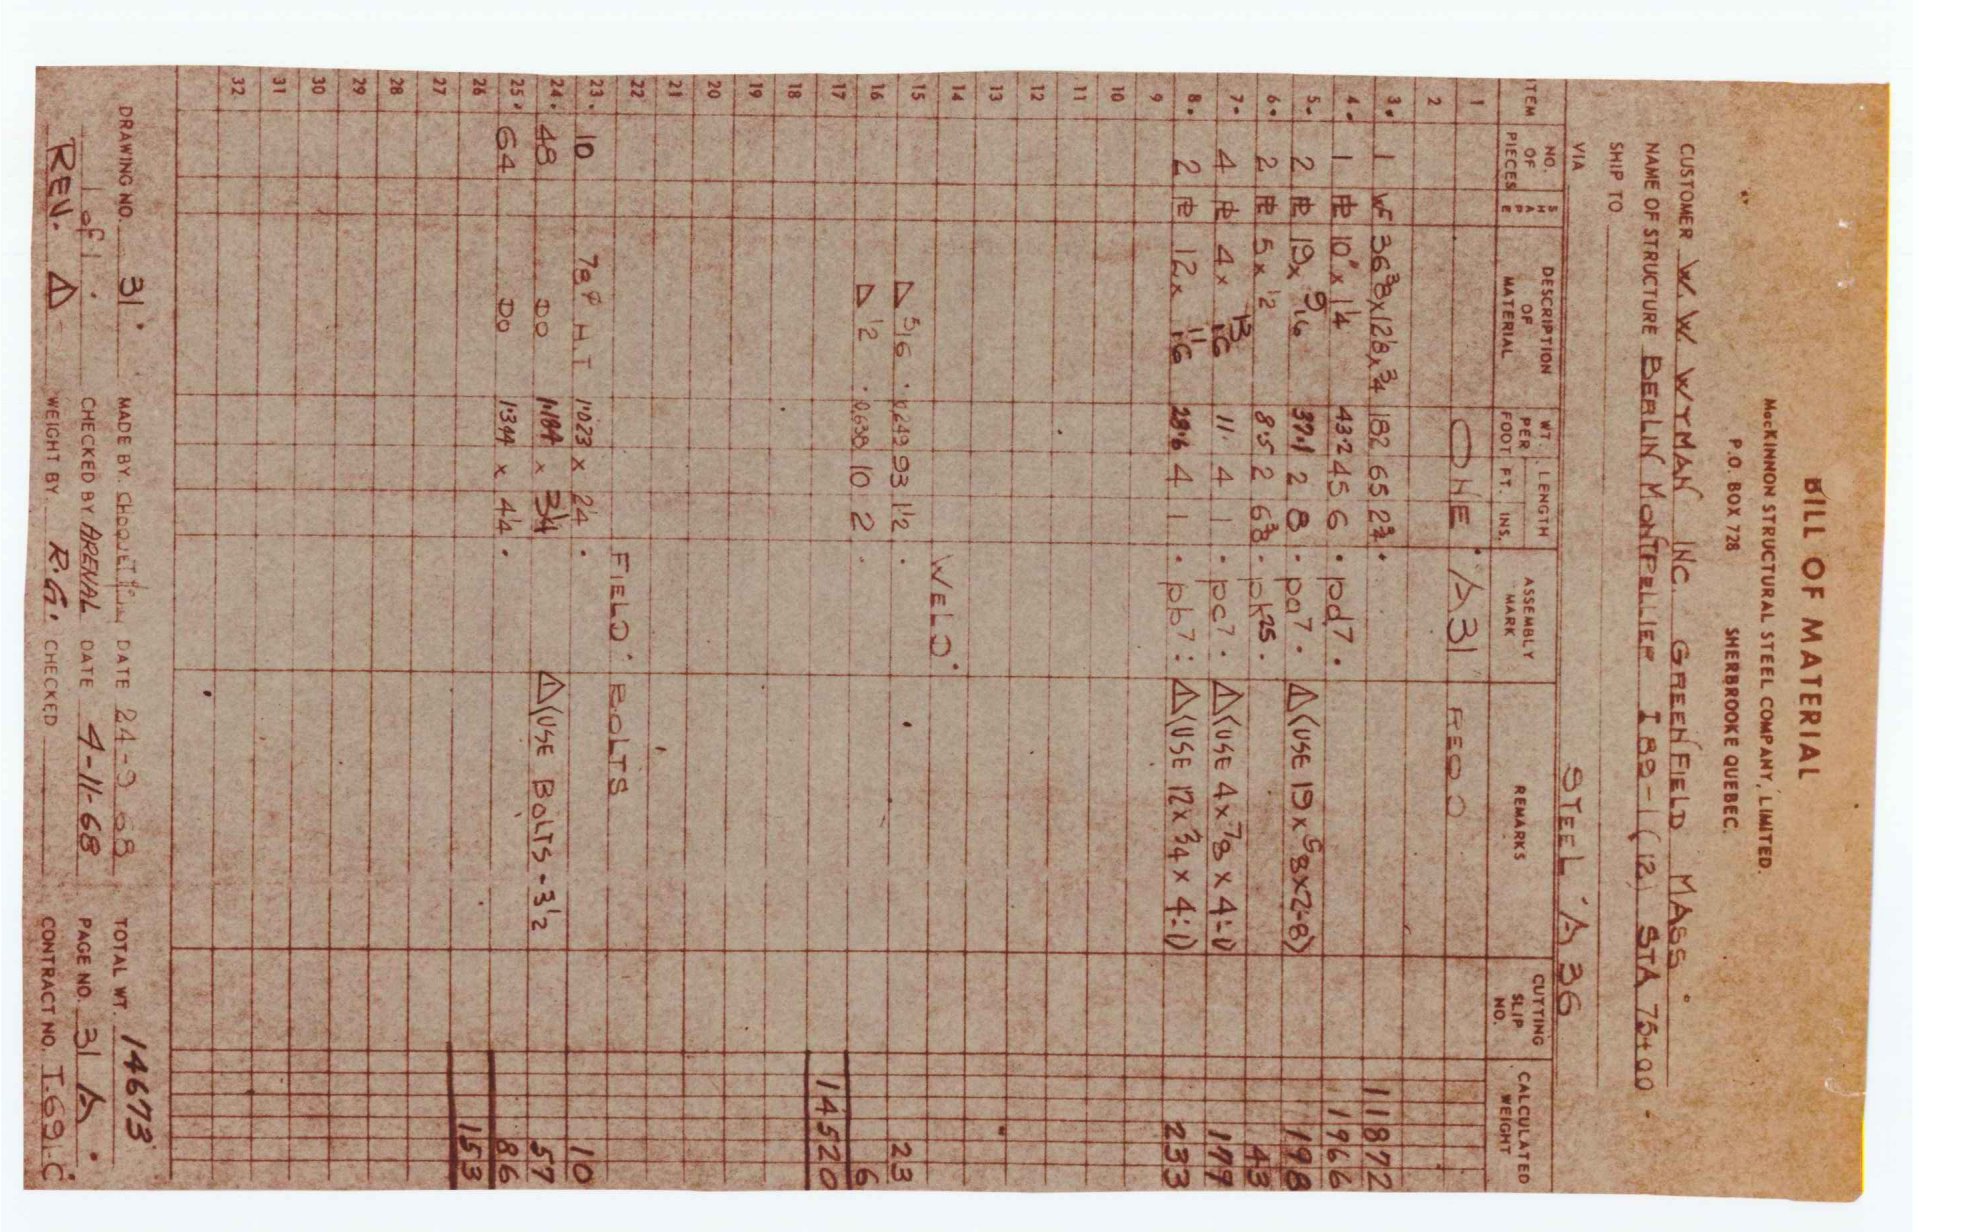 BILL OF MATERIAL
MacKINNON STRUCTURAL STEEL COMPANY, LIMITED.
P.O. BOX 728 SHERBROOKE QUEBEC.
CUSTOMER W. W. WYMAN INC. GREENFIELD MASS
NAME OF STRUCTURE BERLIN MONTPELLIER I 89-1 (12) STA 75+00
SHIP TO
VIA STEEL A 36
ITEM NO. OF PIECES SHAPE DESCRIPTION OF MATERIAL WT. PER FOOT LENGTH FT. INS. ASSEMBLY MARK REMARKS CUTTING SLIP NO. CALCULATED WEIGHT
1 ONE A31 REQD
2
3. 1 WF 36 3/8 x 12 1/8 x 3/4 182 65 2 3/4 . 11872
4. 1 PL 10" x 1 1/4 43.2 45 6 . pd7 . 1966
5. 2 PL 19 x 9/16 37.1 2 8 . pa7 . △ (USE 19 x 5/8 x 2-8) 198
6. 2 PL 5 x 1/2 8.5 2 6 3/8 . pk25 . 43
7. 4 PL 4 x 13/16 11. 4 1 . pc7 . △ (USE 4 x 7/8 x 4-1) 179
8. 2 PL 12 x 11/16 28.6 4 1 . pb7 : △ (USE 12 x 3/4 x 4-1) 233
9
10
11
12
13
14 WELD
15 △ 5/16 . 0.249 93 1 1/2 . 23
16 △ 1/2 . 0.638 10 2 . 6
17 14520
18
19
20
21
22 FIELD BOLTS
23. 10 7/8 φ H.T 1.023 x 2 1/4 . 10
24. 48 DO 1.184 x 3 1/4 △ (USE BOLTS - 3 1/2 57
25. 64 DO 1.344 x 4 1/4 . 86
26 153
27
28
29
30
31
32
DRAWING NO. 31 . MADE BY. DATE 24-9 68 TOTAL WT. 14673
1 of 1 . CHECKED BY ARENAL DATE 4-11-68 PAGE NO. 31 A
REV. △ WEIGHT BY R.G. CHECKED CONTRACT NO. I-69-C